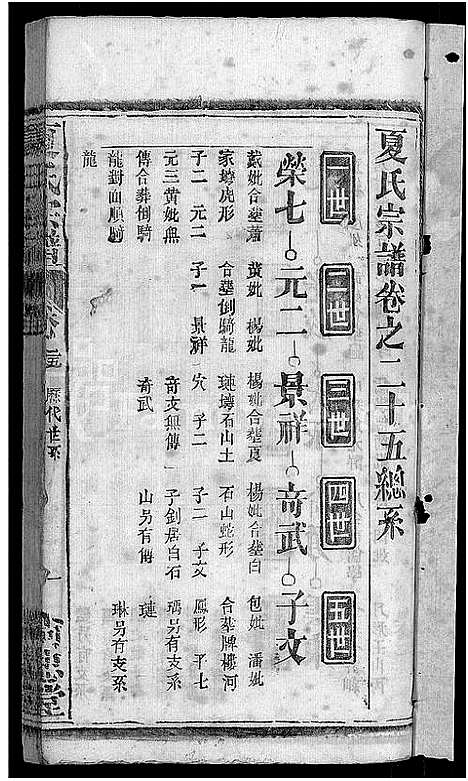 夏氏宗譜卷之二十五總系
一世
二世
三世
四世
五世
榮七
元二
景祥
奇武
子文
戴妣合塟蕭
家塝虎形
子二 元二
元三黄妣無
傳合葬倒騎
龍對面順騎
龍
黄妣 楊妣
合塟倒騎龍
子一 景祥
楊妣合塟夏
璉塝石山土
穴 子二
奇支無傳
奇武
楊妣合塟白
石山蛇形
子二 子文
子釗居白石
山另有傳
包妣 潘妣
合塟牌樓河
鳳形 子七
瑀另有支系
璉
琳另有支系
歷代世系